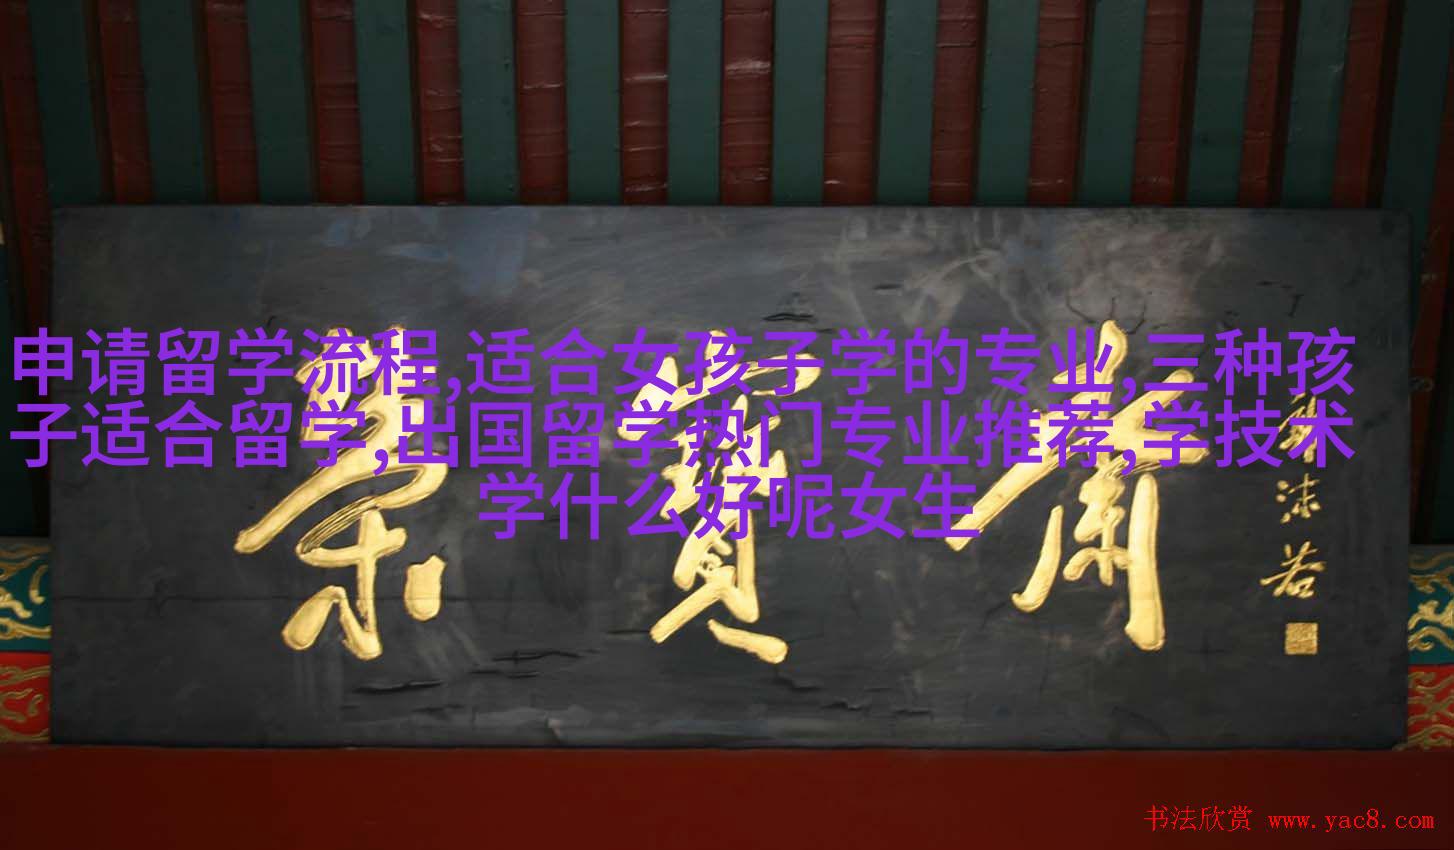 申请留学流程,适合女孩子学的专业,三种孩
子适合留学,出国留学热门专业推荐,学技术
学什么好呢女生
荣寶齋
郭沫若
书法欣赏 www.yac8.com